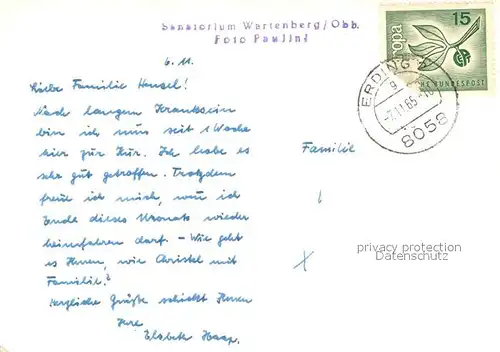 Sanatorium Wartenberg/Obb.
Foto Paulini
6. 11.
Liebe Familie Hensel!
Nach langem Kranksein
bin ich nun seit 1 Woche
hier zur Kur. Ich habe es
sehr gut getroffen. Trotzdem
freue ich mich, wenn ich
Ende dieses Monats wieder
heimfahren darf. – Wie geht
es Ihnen, wie Christel mit
Familie?
Herzliche Grüße schickt Ihnen
Ihre
Elsbeth Haap.
Familie
15
europa
DEUTSCHE BUNDESPOST
ERDING 2
-7.11.65-10
8058
privacy protection
Datenschutz